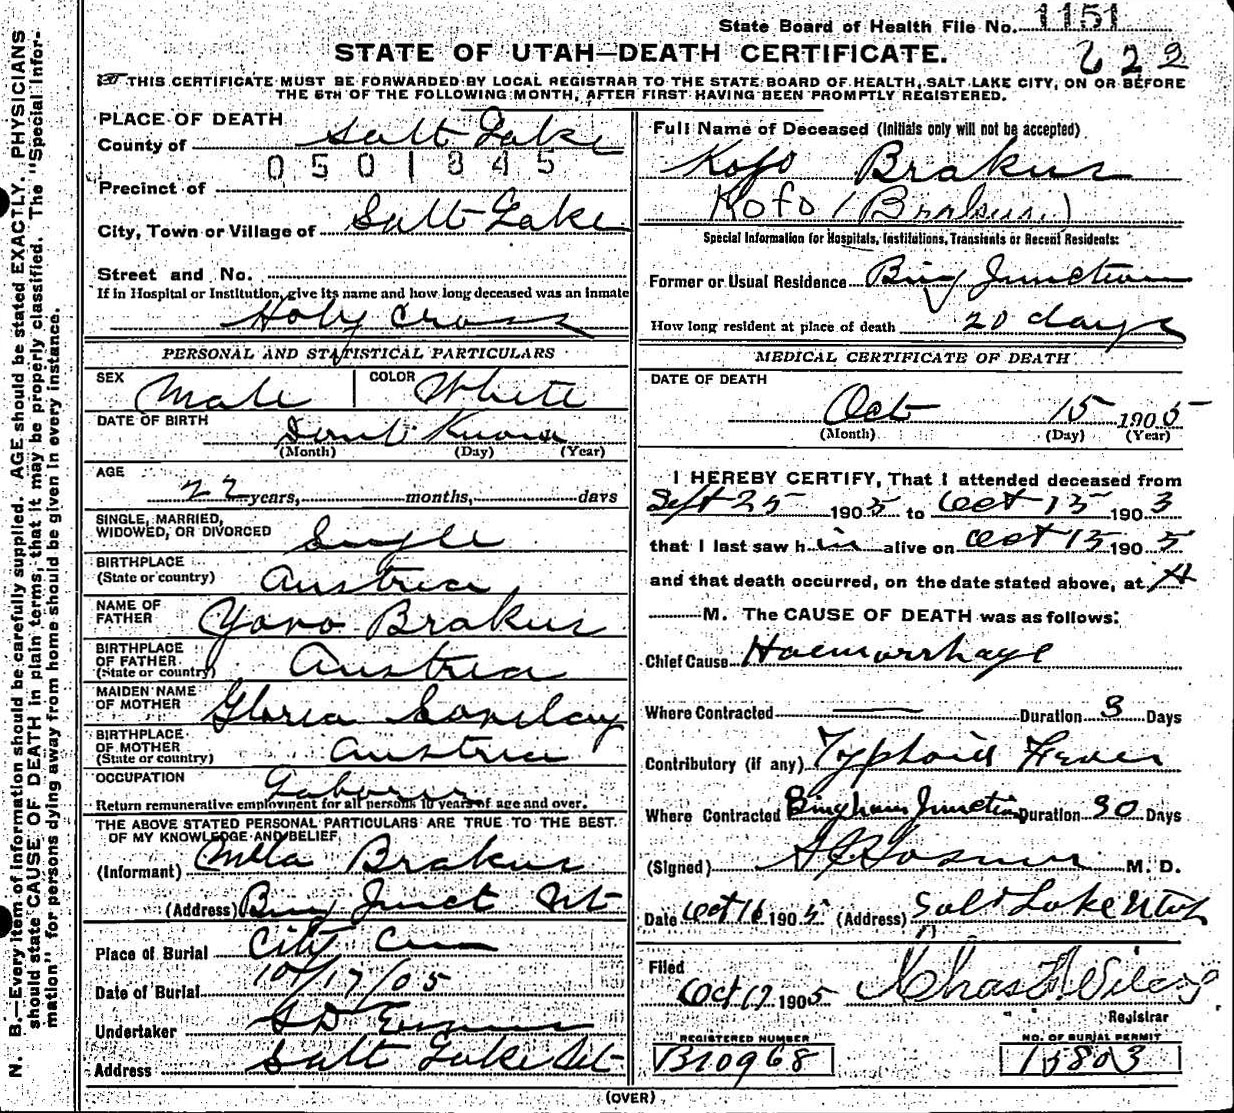 State Board of Health File No. 1151
622
STATE OF UTAH—DEATH CERTIFICATE.
THIS CERTIFICATE MUST BE FORWARDED BY LOCAL REGISTRAR TO THE STATE BOARD OF HEALTH, SALT LAKE CITY, ON OR BEFORE
THE 5TH OF THE FOLLOWING MONTH, AFTER FIRST HAVING BEEN PROMPTLY REGISTERED.
N. B.—Every item of information should be carefully supplied. AGE should be stated EXACTLY. PHYSICIANS
should state CAUSE OF DEATH in plain terms, that it may be properly classified. The "Special Infor-
mation" for persons dying away from home should be given in every instance.
PLACE OF DEATH
County of Salt Lake
0501845
Precinct of
City, Town or Village of Salt Lake
Street and No.
If in Hospital or Institution, give its name and how long deceased was an inmate
Holy Cross
PERSONAL AND STATISTICAL PARTICULARS
SEX Male COLOR White
DATE OF BIRTH Dont Know
(Month) (Day) (Year)
AGE
22 years, months, days
SINGLE, MARRIED,
WIDOWED, OR DIVORCED Single
BIRTHPLACE
(State or country) Austria
NAME OF
FATHER Yovo Brakus
BIRTHPLACE
OF FATHER
(State or country) Austria
MAIDEN NAME
OF MOTHER Gloria
BIRTHPLACE
OF MOTHER
(State or country) Austria
OCCUPATION Laborer
Return remunerative employment for all persons 10 years of age and over.
THE ABOVE STATED PERSONAL PARTICULARS ARE TRUE TO THE BEST
OF MY KNOWLEDGE AND BELIEF
(Informant) Brakus
(Address) Bing Junct Ut
Place of Burial City Cem
Date of Burial 10/17/05
Undertaker S D Evans
Address Salt Lake Ut
Full Name of Deceased (Initials only will not be accepted)
Kofo Brakus
Kofo (Brakus)
Special Information for Hospitals, Institutions, Transients or Recent Residents:
Former or Usual Residence Bing Junction
How long resident at place of death 20 days
MEDICAL CERTIFICATE OF DEATH
DATE OF DEATH
Oct 15 1905
(Month) (Day) (Year)
I HEREBY CERTIFY, That I attended deceased from
Sept 25 1905 to Oct 15 1905
that I last saw him alive on Oct 15 1905
and that death occurred, on the date stated above, at A
M. The CAUSE OF DEATH was as follows:
Chief Cause Haemorrhage
Where Contracted — Duration 3 Days
Contributory (if any) Typhoid Fever
Where Contracted Bingham Junction Duration 30 Days
(Signed) M. D.
Date Oct 16 1905 (Address) Salt Lake Utah
Filed
Oct 17 1905 Chas F Wilcox
Registrar
REGISTERED NUMBER
B10968
NO. OF BURIAL PERMIT
15803
(OVER)